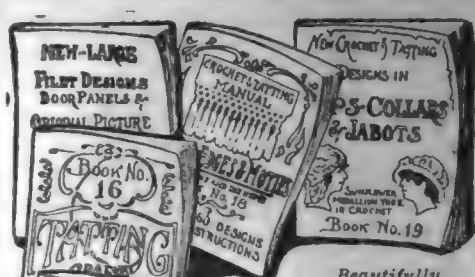 NEW-LARGE
FILET DESIGNS
DOOR PANELS &
ORIGINAL PICTURE
BOOK No.
16
TATTING
CROCHET & TATTING
MANUAL
& MOTTOES
No. 18
DESIGNS
INSTRUCTIONS
New CROCHET & TATTING
DESIGNS IN
CAPS-COLLARS
& JABOTS
SUNFLOWER
MEDALLION YOKE
IN CROCHET
BOOK No. 19
Beautifully